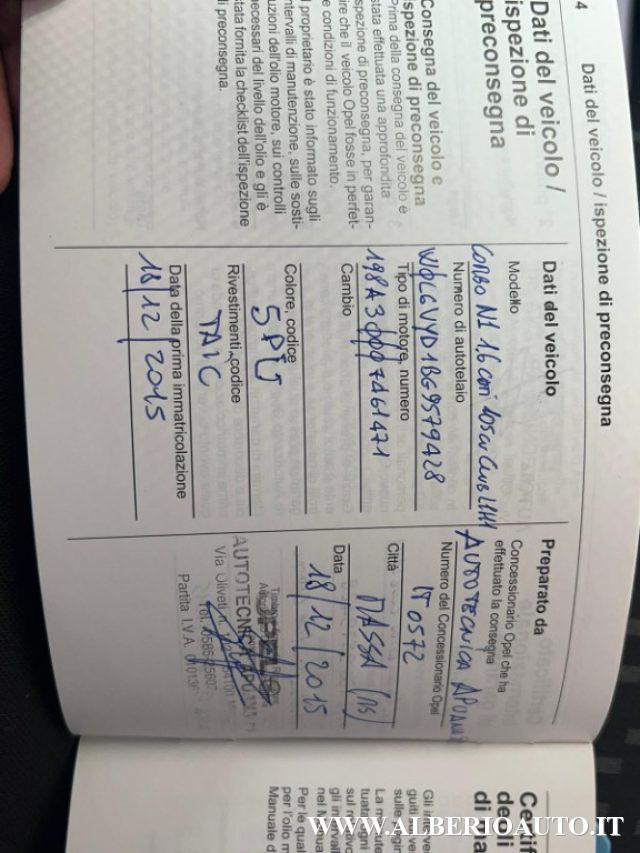 4
Dati del veicolo / ispezione di preconsegna
Dati del veicolo /
ispezione di
preconsegna
Consegna del veicolo e
ispezione di preconsegna
Prima della consegna del veicolo è
stata effettuata una approfondita
ispezione di preconsegna, per garan-
tire che il veicolo Opel fosse in perfet-
te condizioni di funzionamento.
Il proprietario è stato informato sugli
intervalli di manutenzione, sulle sosti-
tuzioni dell'olio motore, sui controlli
necessari del livello dell'olio e gli è
stata fornita la checklist dell'ispezione
di preconsegna.
Dati del veicolo
Modello
COMBO N1 1.6 CDTI 105CV L1H1
Numero di autotelaio
W0L6VYD1BG9579428
Tipo di motore, numero
198A3000 7461471
Cambio
Colore, codice
5PU
Rivestimenti, codice
TAIC
Data della prima immatricolazione
18/12/2015
Preparato da
Concessionario Opel che ha
effettuato la consegna
AUTOTECNICA APUANA
Numero del Concessionario Opel
IT 0572
Città
MASSA (MS)
Data
18/12/2015
OPEL
AUTOTECNICA
Via Oliveti n.
Tel.
Partita I.V.A.
Gli
La
nel
Per le
per l'olio
Manuale d
WWW.ALBERIOAUTO.IT